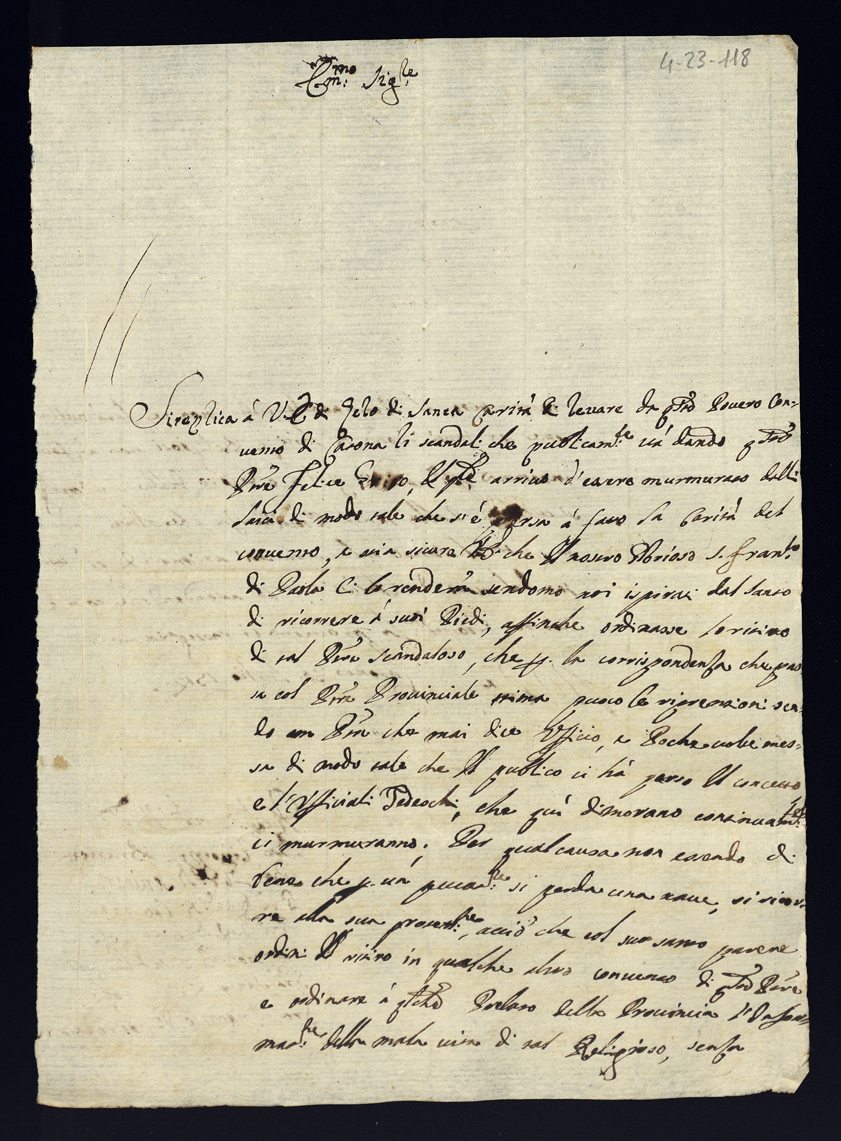 4-23-118
Em:mo Sig:re
Si replica à V.E. di Zelo di Santa Carità di levare da q.sto Povero Con-
vento di Carona li scandali che publicam:te và dando q.sto
P̃re Felice, Il q.le arrivo d'essere murmurato dalli
laici di modo tale che si è persa à fato la Carità del
convento, e sia sicura che Il nostro Glorioso S. Fran:co
di Paola Ci lo renderà sendomo noi ispirati dal Santo
di ricorrere à suoi Piedi, affinche ordinasse lo ritiro
di tal P̃re scandaloso, che p. la corrispondenza che pas-
sa col P̃re Provinciale stima puoco le riprenzioni sen-
do un P̃re che mai dice Ufficio, e Poche volte mes-
sa di modo tale che Il publico ci hà perso Il concetto
e l'Ufficiali Tedeschi, che quì dimorano continuam:te
ci murmuranno. Per qual causa non essendo di
bene che p. un si perda una nave, si ricor-
re alla sua, acciò che col suo santo parere
ordini Il ritiro in qualche altro convento di q.sto P̃re
e ordinare à Prelato della Provincia l'Infor-
mat:ne della mala vita di tal Religioso, senza